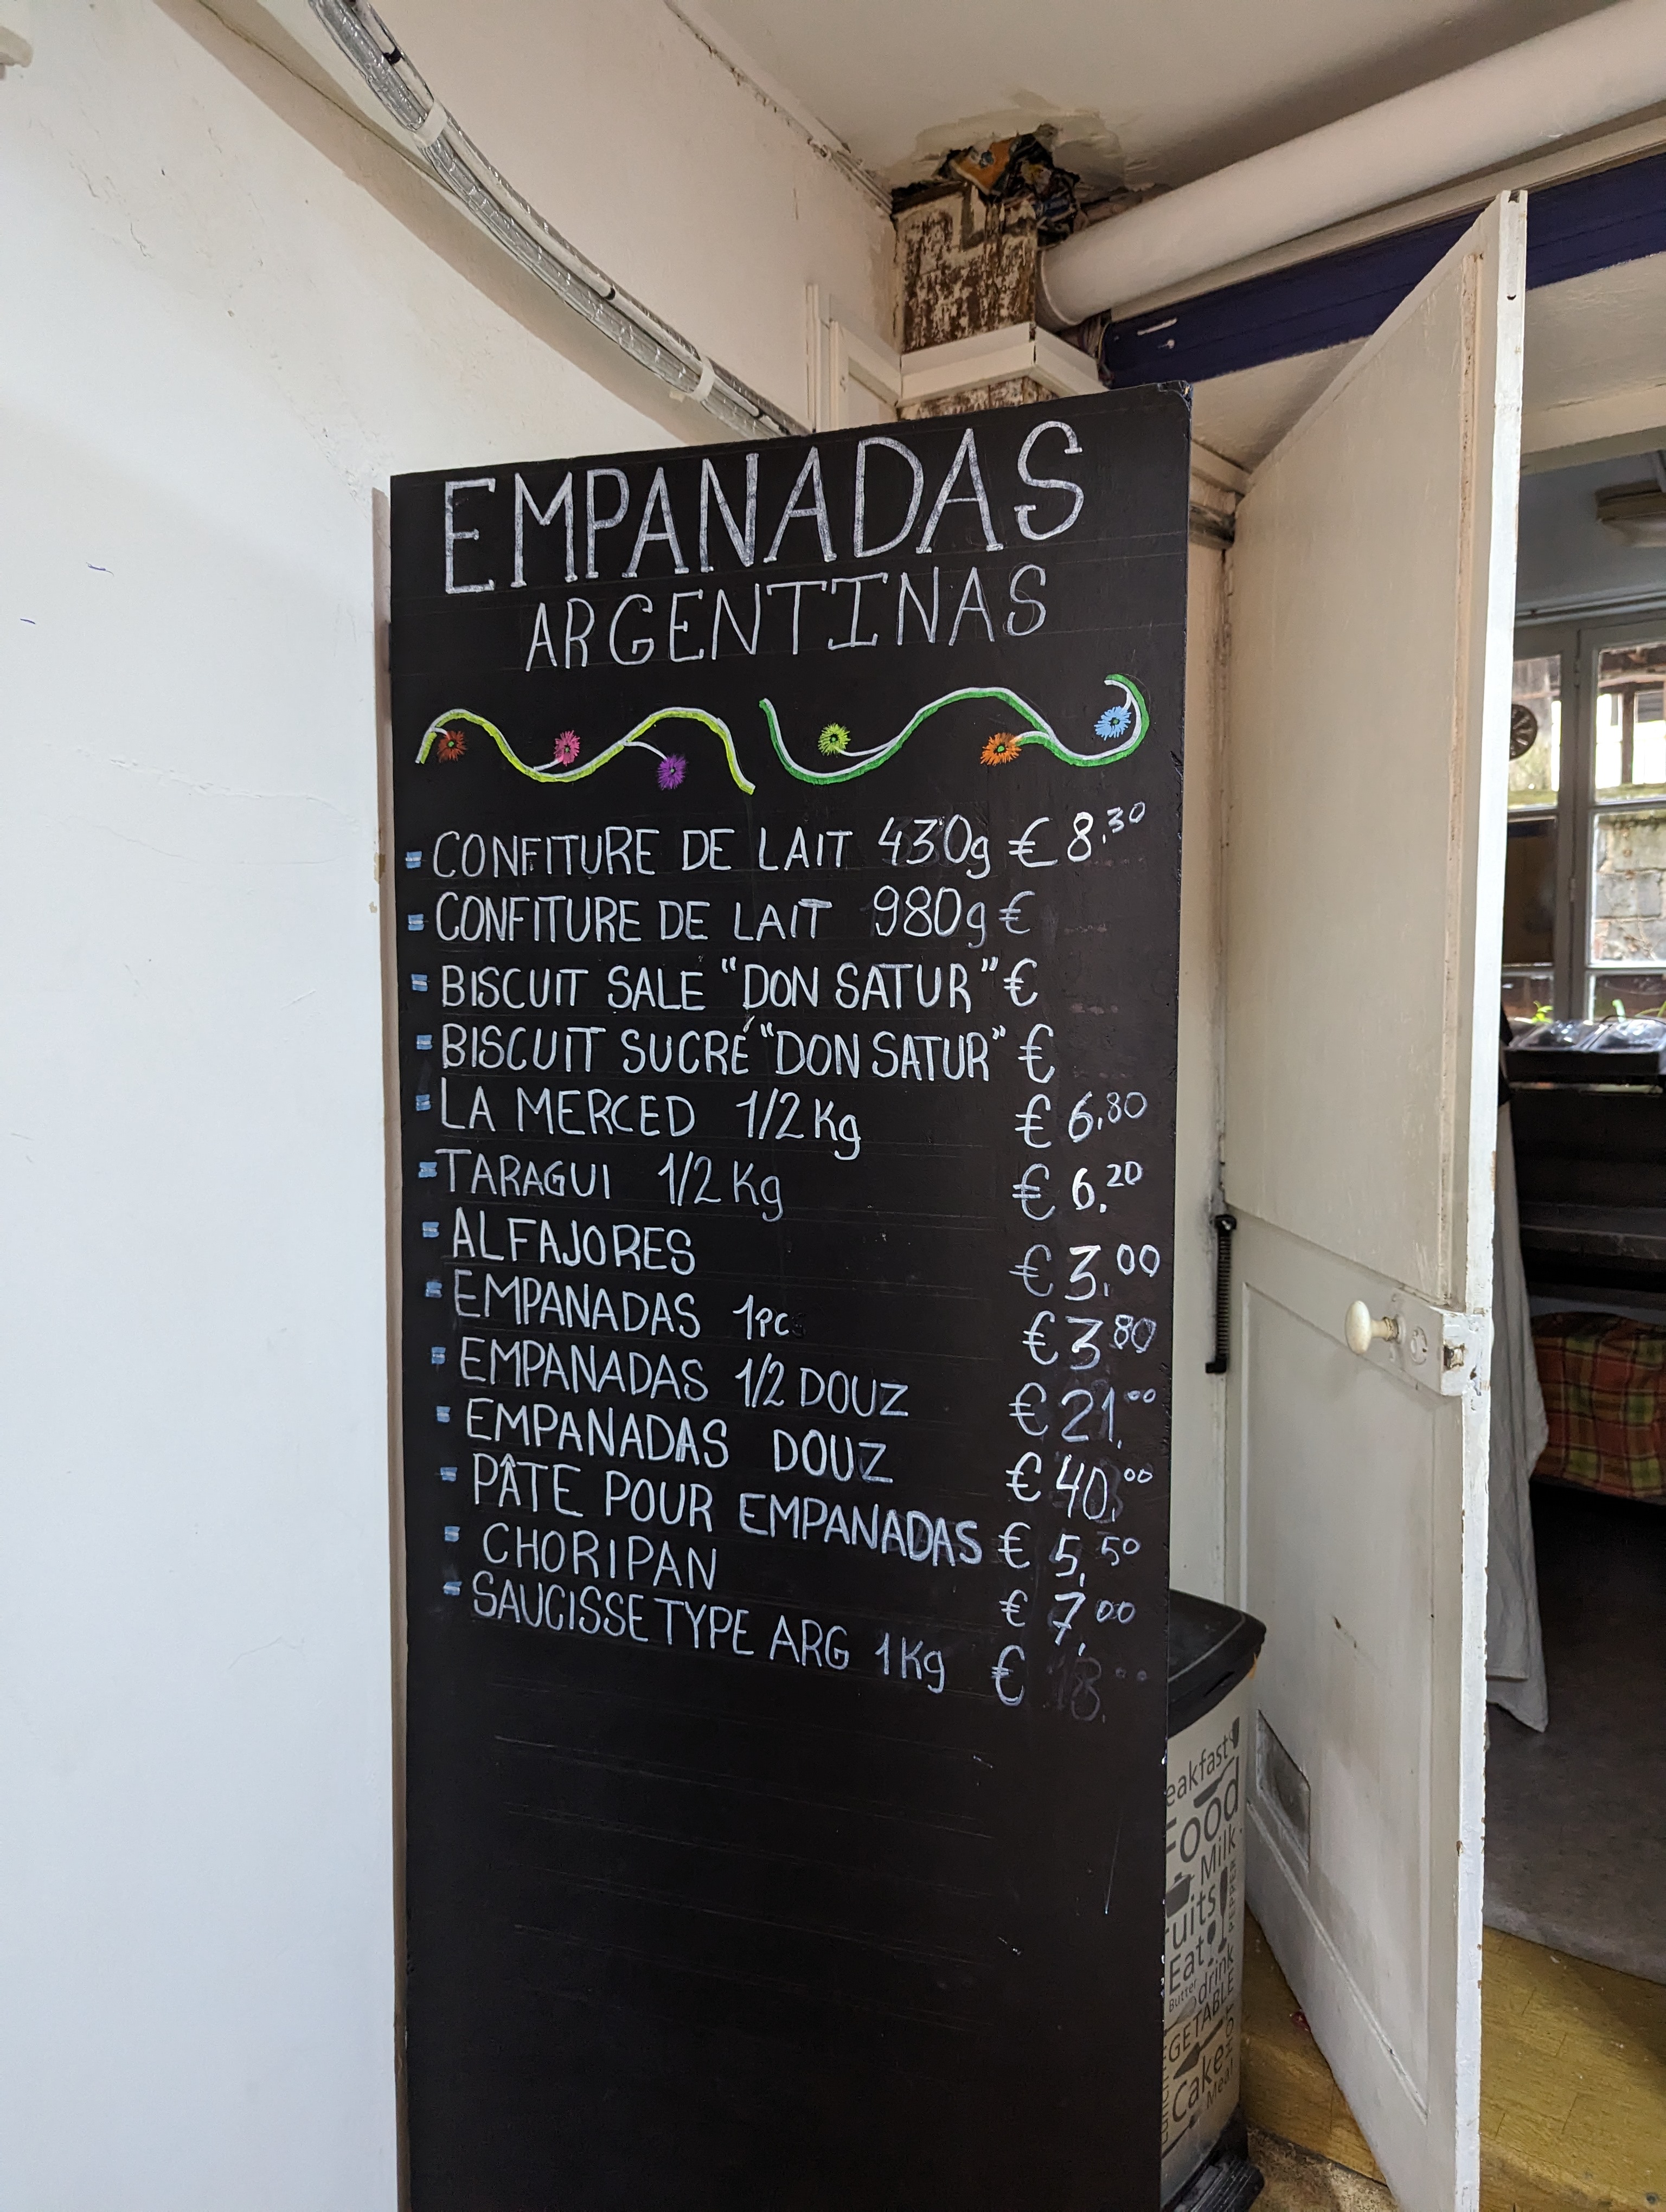 EMPANADAS
ARGENTINAS
CONFITURE DE LAIT 430g € 8.30
CONFITURE DE LAIT 980g €
BISCUIT SALE "DON SATUR" €
BISCUIT SUCRÉ "DON SATUR" €
LA MERCED 1/2 Kg € 6.80
TARAGUI 1/2 Kg € 6.20
ALFAJORES € 3.00
EMPANADAS 1pc € 3.80
EMPANADAS 1/2 DOUZ € 21.00
EMPANADAS DOUZ € 40.00
PÂTE POUR EMPANADAS € 5.50
CHORIPAN € 7.00
SAUCISSE TYPE ARG 1Kg €
eakfast
Food
Milk
uits
Eat
Butter drink
GETABLE
Cake
Meal